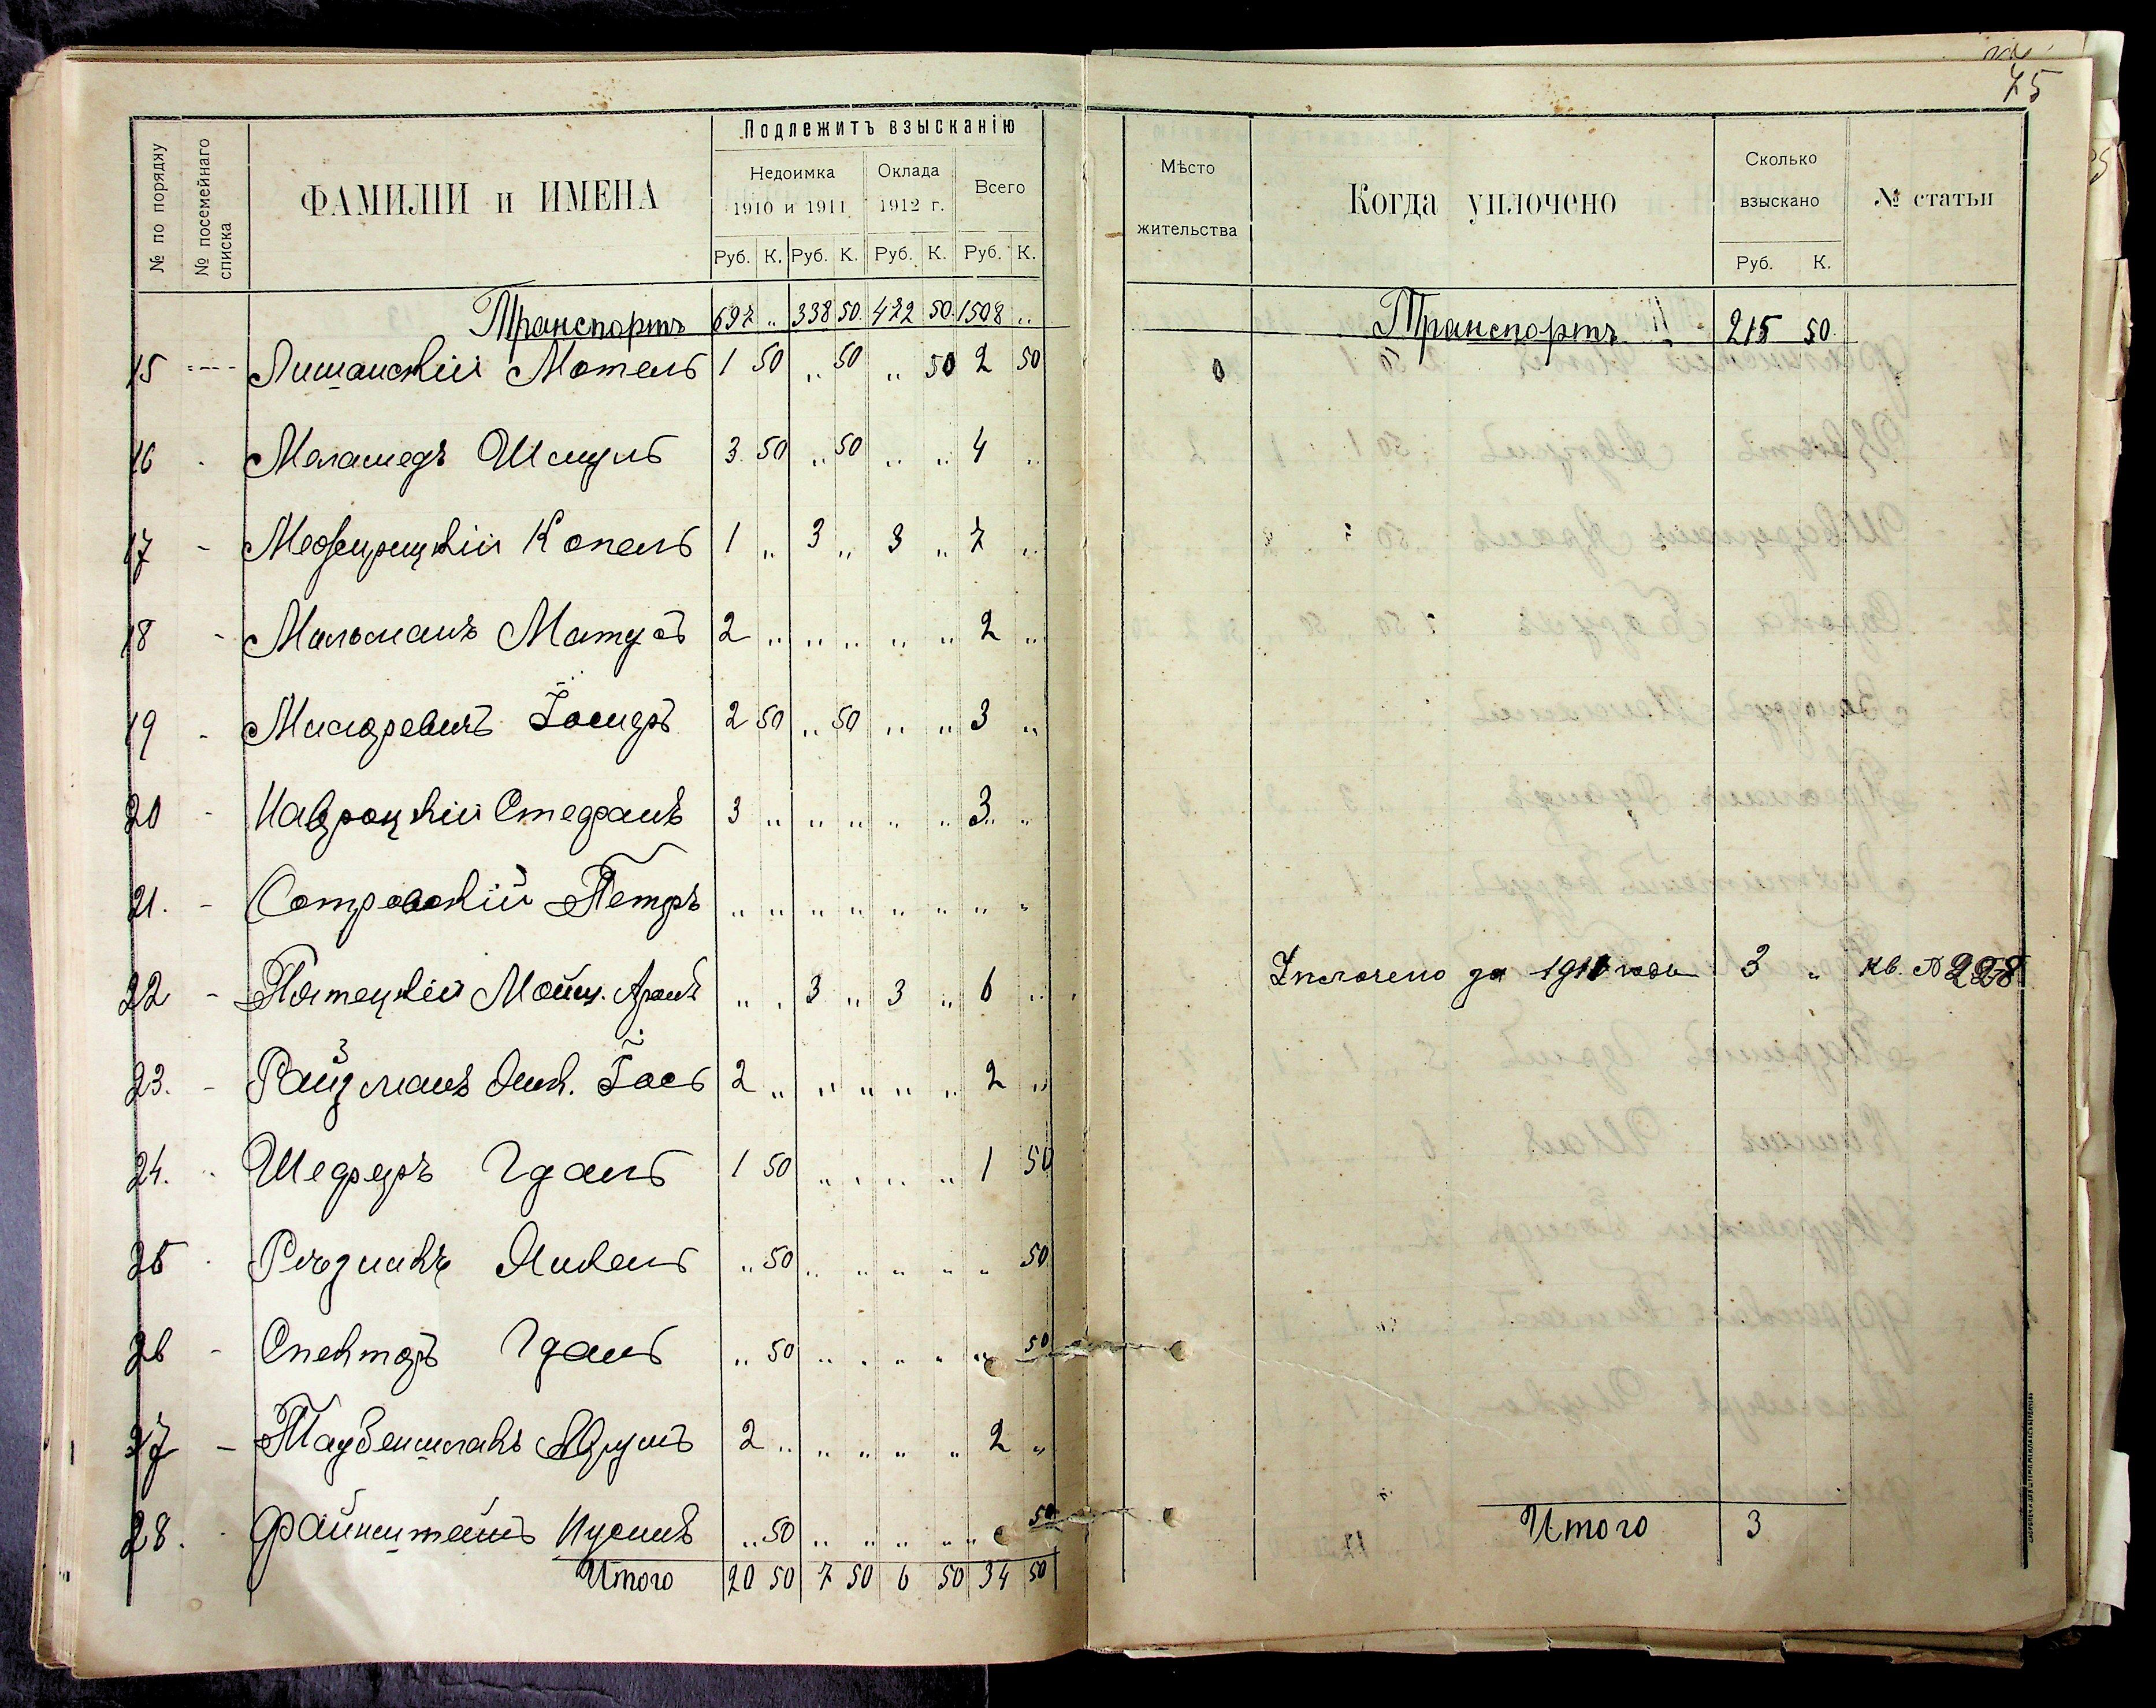 75
№ по порядку
№ посемейнаго списка
ФАМИЛІИ и ИМЕНА
Подлежитъ взысканію
Недоимка
1910 и 1911
Оклада
1912 г.
Всего
Руб. К. Руб. К. Руб. К. Руб. К.
Мѣсто
жительства
Когда уплочено
Сколько
взыскано
Руб. К.
№ статьи
Транспортъ 697 „ 338 50 472 50 1508 „
Транспортъ 215 50
15 Лишанскій Мотель 1 50 „ 50 „ 50 2 50
16 Меламедъ Шмуль 3 50 „ 50 „ „ 4 „
17 Межирицкій Копель 1 „ 3 „ 3 „ 7 „
18 Мальманъ Матусъ 2 „ „ „ „ „ 2 „
19 Іосифъ 2 50 „ 50 „ „ 3 „
20 Навроцкій Стефанъ 3 „ „ „ „ „ 3 „
21. Петръ „ „ „ „ „ „ „ „
22 Пятецкій Мойш. Аронъ „ „ 3 „ 3 „ 6 „
Уплочено за 3 „ кв. № 228
23. Райзманъ Янк. Іось 2 „ „ „ „ „ 2 „
24. Шеферъ Гдаль 1 50 „ „ „ „ 1 50
25 Рѣзникъ Янкель „ 50 „ „ „ „ „ 50
26 Спекторъ Гдаль „ 50 „ „ „ „ „ 50
27 Таубеншлакъ 2 „ „ „ „ „ 2 „
28. Файнштейнъ Нусинъ „ 50 „ „ „ „ „ 50
Итого 20 50 7 50 6 50 34 50
Итого 3